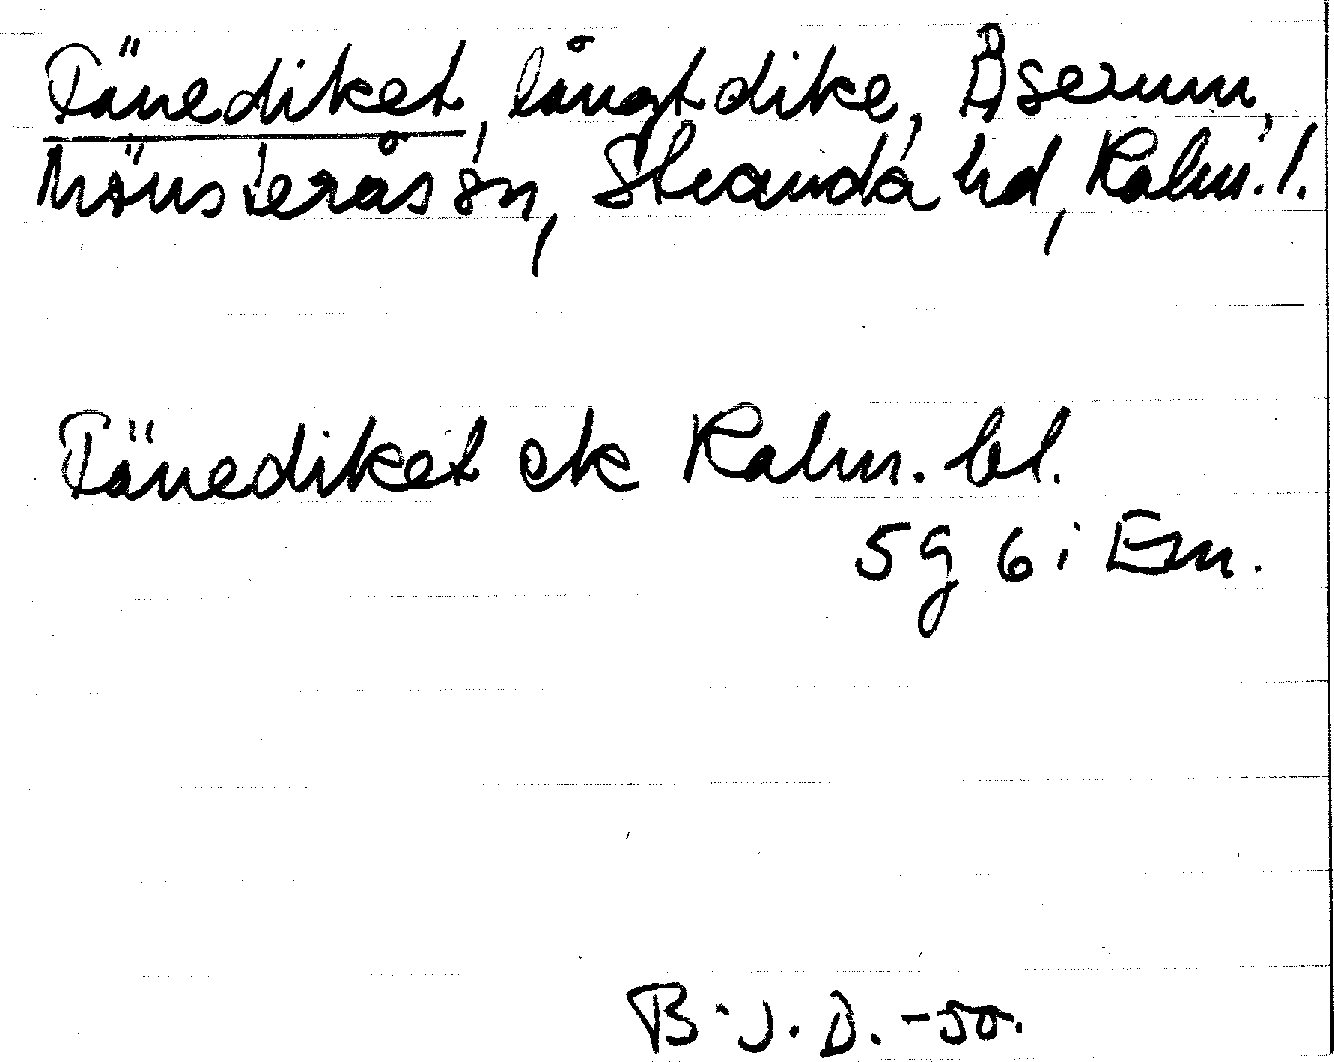 Tänediket, långt dike, Åserum,
Mönsterås sn, Stranda hd, Kalm. l.
Tänediket ek Kalm. bl.
5 g 6 i Em.
B.J.D. -50.